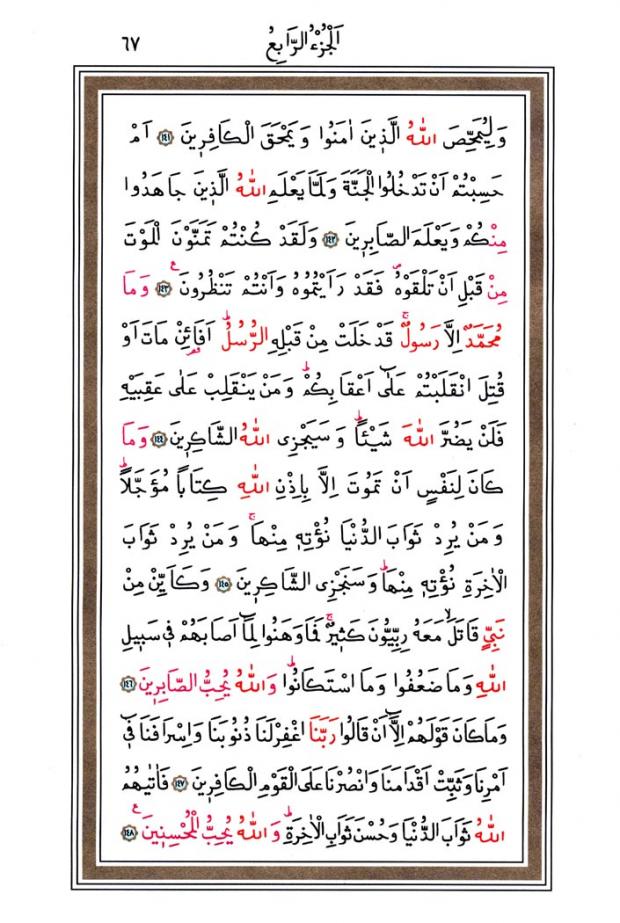 الْجُزْءُ الرَّابِعُ ٦٧
وَلِيُمَحِّصَ اللّٰهُ الَّذِينَ اٰمَنُوا وَيَمْحَقَ الْكَافِرِينَ ﴿١٤١﴾ اَمْ
حَسِبْتُمْ اَنْ تَدْخُلُوا الْجَنَّةَ وَلَمَّا يَعْلَمِ اللّٰهُ الَّذِينَ جَاهَدُوا
مِنْكُمْ وَيَعْلَمَ الصَّابِرِينَ ﴿١٤٢﴾ وَلَقَدْ كُنْتُمْ تَمَنَّوْنَ الْمَوْتَ
مِنْ قَبْلِ اَنْ تَلْقَوْهُ فَقَدْ رَاَيْتُمُوهُ وَاَنْتُمْ تَنْظُرُونَ ﴿١٤٣﴾ وَمَا
مُحَمَّدٌ اِلَّا رَسُولٌ قَدْ خَلَتْ مِنْ قَبْلِهِ الرُّسُلُ اَفَا۬ئِنْ مَاتَ اَوْ
قُتِلَ انْقَلَبْتُمْ عَلٰٓى اَعْقَابِكُمْ وَمَنْ يَنْقَلِبْ عَلٰى عَقِبَيْهِ
فَلَنْ يَضُرَّ اللّٰهَ شَيْـًٔا وَسَيَجْزِى اللّٰهُ الشَّاكِرِينَ ﴿١٤٤﴾ وَمَا
كَانَ لِنَفْسٍ اَنْ تَمُوتَ اِلَّا بِاِذْنِ اللّٰهِ كِتَابًا مُؤَجَّلًا
وَمَنْ يُرِدْ ثَوَابَ الدُّنْيَا نُؤْتِهِ مِنْهَا وَمَنْ يُرِدْ ثَوَابَ
الْاٰخِرَةِ نُؤْتِهِ مِنْهَا وَسَنَجْزِى الشَّاكِرِينَ ﴿١٤٥﴾ وَكَاَيِّنْ مِنْ
نَبِيٍّ قَاتَلَ مَعَهُ رِبِّيُّونَ كَثِيرٌ فَمَا وَهَنُوا لِمَٓا اَصَابَهُمْ فِى سَبِيلِ
اللّٰهِ وَمَا ضَعُفُوا وَمَا اسْتَكَانُوا وَاللّٰهُ يُحِبُّ الصَّابِرِينَ ﴿١٤٦﴾
وَمَا كَانَ قَوْلَهُمْ اِلَّٓا اَنْ قَالُوا رَبَّنَا اغْفِرْ لَنَا ذُنُوبَنَا وَاِسْرَافَنَا فِٓى
اَمْرِنَا وَثَبِّتْ اَقْدَامَنَا وَانْصُرْنَا عَلَى الْقَوْمِ الْكَافِرِينَ ﴿١٤٧﴾ فَاٰتٰيهُمُ
اللّٰهُ ثَوَابَ الدُّنْيَا وَحُسْنَ ثَوَابِ الْاٰخِرَةِ وَاللّٰهُ يُحِبُّ الْمُحْسِنِينَ ﴿١٤٨﴾